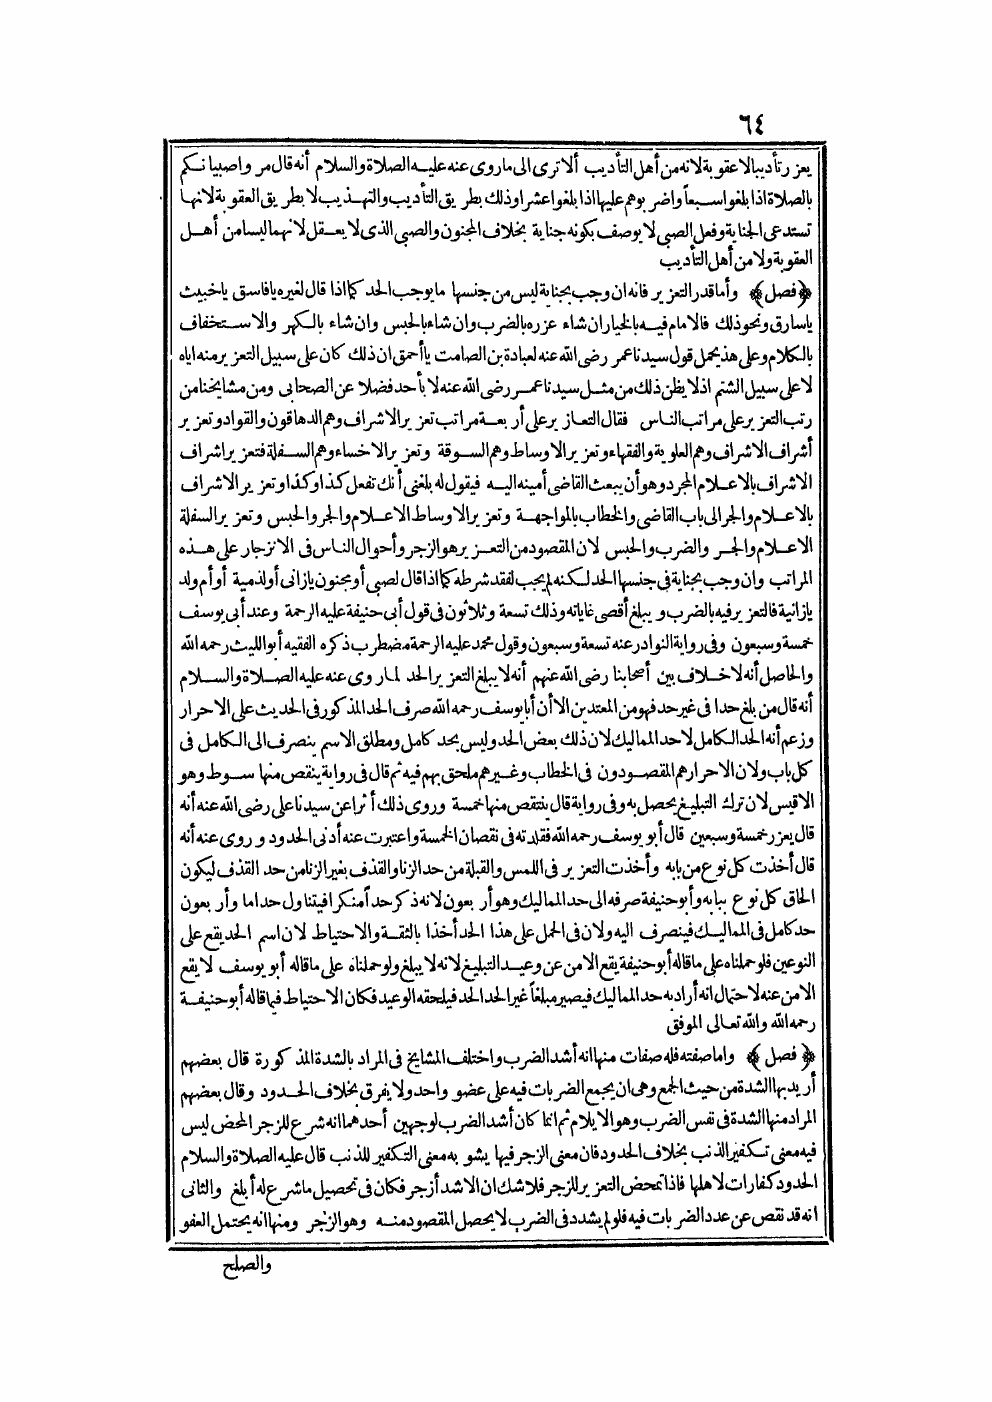 ٦٤
يعزر تأديبا لا عقوبة لانه من أهل التأديب ألا ترى الى ما روى عنه عليه الصلاة والسلام أنه قال مر وا صبيانكم
بالصلاة اذا بلغوا سبعاً واضر بوهم عليها اذا بلغوا عشرا وذلك بطريق التأديب والتهذيب لا بطريق العقوبة لانها
تستدعى الجناية وفعل الصبى لا يوصف بكونه جناية بخلاف المجنون والصبى الذى لا يعقل لانهما ليسا من أهل
العقوبة ولا من أهل التأديب
﴿فصل﴾ وأما قدر التعزير فانه ان وجب بجناية ليس من جنسها ما يوجب الحد كما اذا قال لغيره يا فاسق يا خبيث
يا سارق ونحو ذلك فالامام فيه بالخيار ان شاء عزره بالضرب وان شاء بالحبس وان شاء بالكهر والاستخفاف
بالكلام وعلى هذ يحمل قول سيدنا عمر رضى الله عنه لعبادة بن الصامت يا أحمق ان ذلك كان على سبيل التعزير منه اياه
لا على سبيل الشتم اذ لا يظن ذلك من مثل سيدنا عمر رضى الله عنه لا بأحد فضلا عن الصحابى ومن مشايخنا من
رتب التعزير على مراتب الناس فقال التعازير على أربعة مراتب تعزير الاشراف وهم الدهاقون والقواد وتعزير
أشراف الاشراف وهم العلوية والفقهاء وتعزير الاوساط وهم السوقة وتعزير الاخساء وهم السفلة فتعزير اشراف
الاشراف بالاعلام المجرد وهو أن يبعث القاضى أمينه اليه فيقول له بلغنى أنك تفعل كذا وكذا وتعزير الاشراف
بالاعلام والجر الى باب القاضى والخطاب بالمواجهة وتعزير الاوساط الاعلام والجر والحبس وتعزير السفلة
الاعلام والجر والضرب والحبس لان المقصود من التعزير هو الزجر وأحوال الناس فى الانزجار على هذه
المراتب وان وجب بجناية فى جنسها الحد لكنه لم يجب لفقد شرطه كما اذا قال لصبى أو مجنون يا زانى أو لذمية أو أم ولد
يا زانية فالتعزير فيه بالضرب و يبلغ أقصى غاياته وذلك تسعة وثلاثون فى قول أبى حنيفة عليه الرحمة وعند أبى يوسف
خمسة وسبعون وفى رواية النوادر عنه تسعة وسبعون وقول محمد عليه الرحمة مضطرب ذكره الفقيه أبو الليث رحمه الله
والحاصل أنه لا خلاف بين أصحابنا رضى الله عنهم أنه لا يبلغ التعزير الحد لما روى عنه عليه الصلاة والسلام
أنه قال من بلغ حدا فى غير حد فهو من المعتدين الا أن أبا يوسف رحمه الله صرف الحد المذكور فى الحديث على الاحرار
وزعم أنه الحد الكامل لا حد المماليك لان ذلك بعض الحد وليس بحد كامل ومطلق الاسم ينصرف الى الكامل فى
كل باب ولان الاحرار هم المقصودون فى الخطاب وغيرهم ملحق بهم فيه ثم قال فى رواية ينقص منها سوط وهو
الاقيس لان ترك التبليغ يحصل به وفى رواية قال ينتقص منها خمسة وروى ذلك أثرا عن سيدنا على رضى الله عنه أنه
قال يعزر خمسة وسبعين قال أبو يوسف رحمه الله فقلدته فى نقصان الخمسة واعتبرت عنه أدنى الحدود و روى عنه أنه
قال أخذت كل نوع من بابه وأخذت التعزير فى اللمس والقبلة من حد الزنا والقذف بغير الزنا من حد القذف ليكون
الحاق كل نوع ببابه وأبو حنيفة صرفه الى حد المماليك وهو أربعون لانه ذكر حداً منكرا فيتناول حداما وأربعون
حد كامل فى المماليك فينصرف اليه ولان فى الحمل على هذا الحد أخذا بالثقة والاحتياط لان اسم الحد يقع على
النوعين فلو حملناه على ما قاله أبو حنيفة يقع الامن عن وعيد التبليغ لانه لا يبلغ ولو حملناه على ما قاله أبو يوسف لا يقع
الامن عنه لاحتمال انه أراد به حد المماليك فيصير مبلغاً غير الحد الحد فيلحقه الوعيد فكان الاحتياط فيما قاله أبو حنيفة
رحمه الله والله تعالى الموفق
﴿فصل﴾ واما صفته فله صفات منها انه أشد الضرب واختلف المشايخ فى المراد بالشدة المذكورة قال بعضهم
أريد بها الشدة من حيث الجمع وهى ان يجمع الضربات فيه على عضو واحد ولا يفرق بخلاف الحدود وقال بعضهم
المراد منها الشدة فى نفس الضرب وهو الايلام ثم انما كان أشد الضرب لوجهين أحدهما انه شرع للزجر المحض ليس
فيه معنى تكفير الذنب بخلاف الحدود فان معنى الزجر فيها يشو به معنى التكفير للذنب قال عليه الصلاة والسلام
الحدود كفارات لاهلها فاذا تمحض التعزير للزجر فلا شك ان الاشد أزجر فكان فى تحصيل ما شرع له أبلغ والثانى
انه قد نقص عن عدد الضربات فيه فلو لم يشدد فى الضرب لا يحصل المقصود منه وهو الزجر ومنها انه يحتمل العفو
والصلح